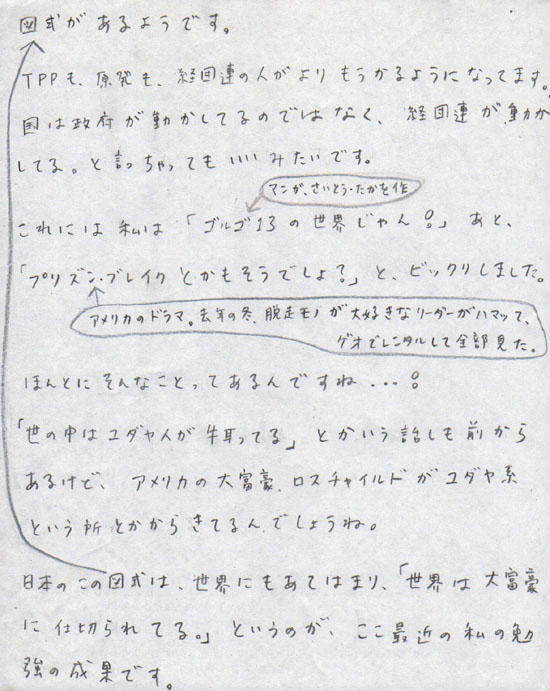 図式があるようです。
TPPも、原発も、経団連の人がよりもうかるようになってます。
国は政府が動かしてるのではなく、経団連が動か
してる。と言っちゃってもいいみたいです。
マンガ、さいとう・たかを作
これには私は「ゴルゴ13の世界じゃん!」あと、
「プリズン・ブレイクとかもそうでしょ?」と、ビックリしました。
アメリカのドラマ。去年の冬、脱走モノが大好きなリーダーがハマッて、
ゲオでレンタルして全部見た。
ほんとにそんなことってあるんですね...!
「世の中はユダヤ人が牛耳ってる」とかいう話しも前から
あるけど、アメリカの大富豪、ロスチャイルドがユダヤ系
という所とかからきてるんでしょうね。
日本のこの図式は、世界にもあてはまり、「世界は大富豪
に仕切られてる。」というのが、ここ最近の私の勉
強の成果です。